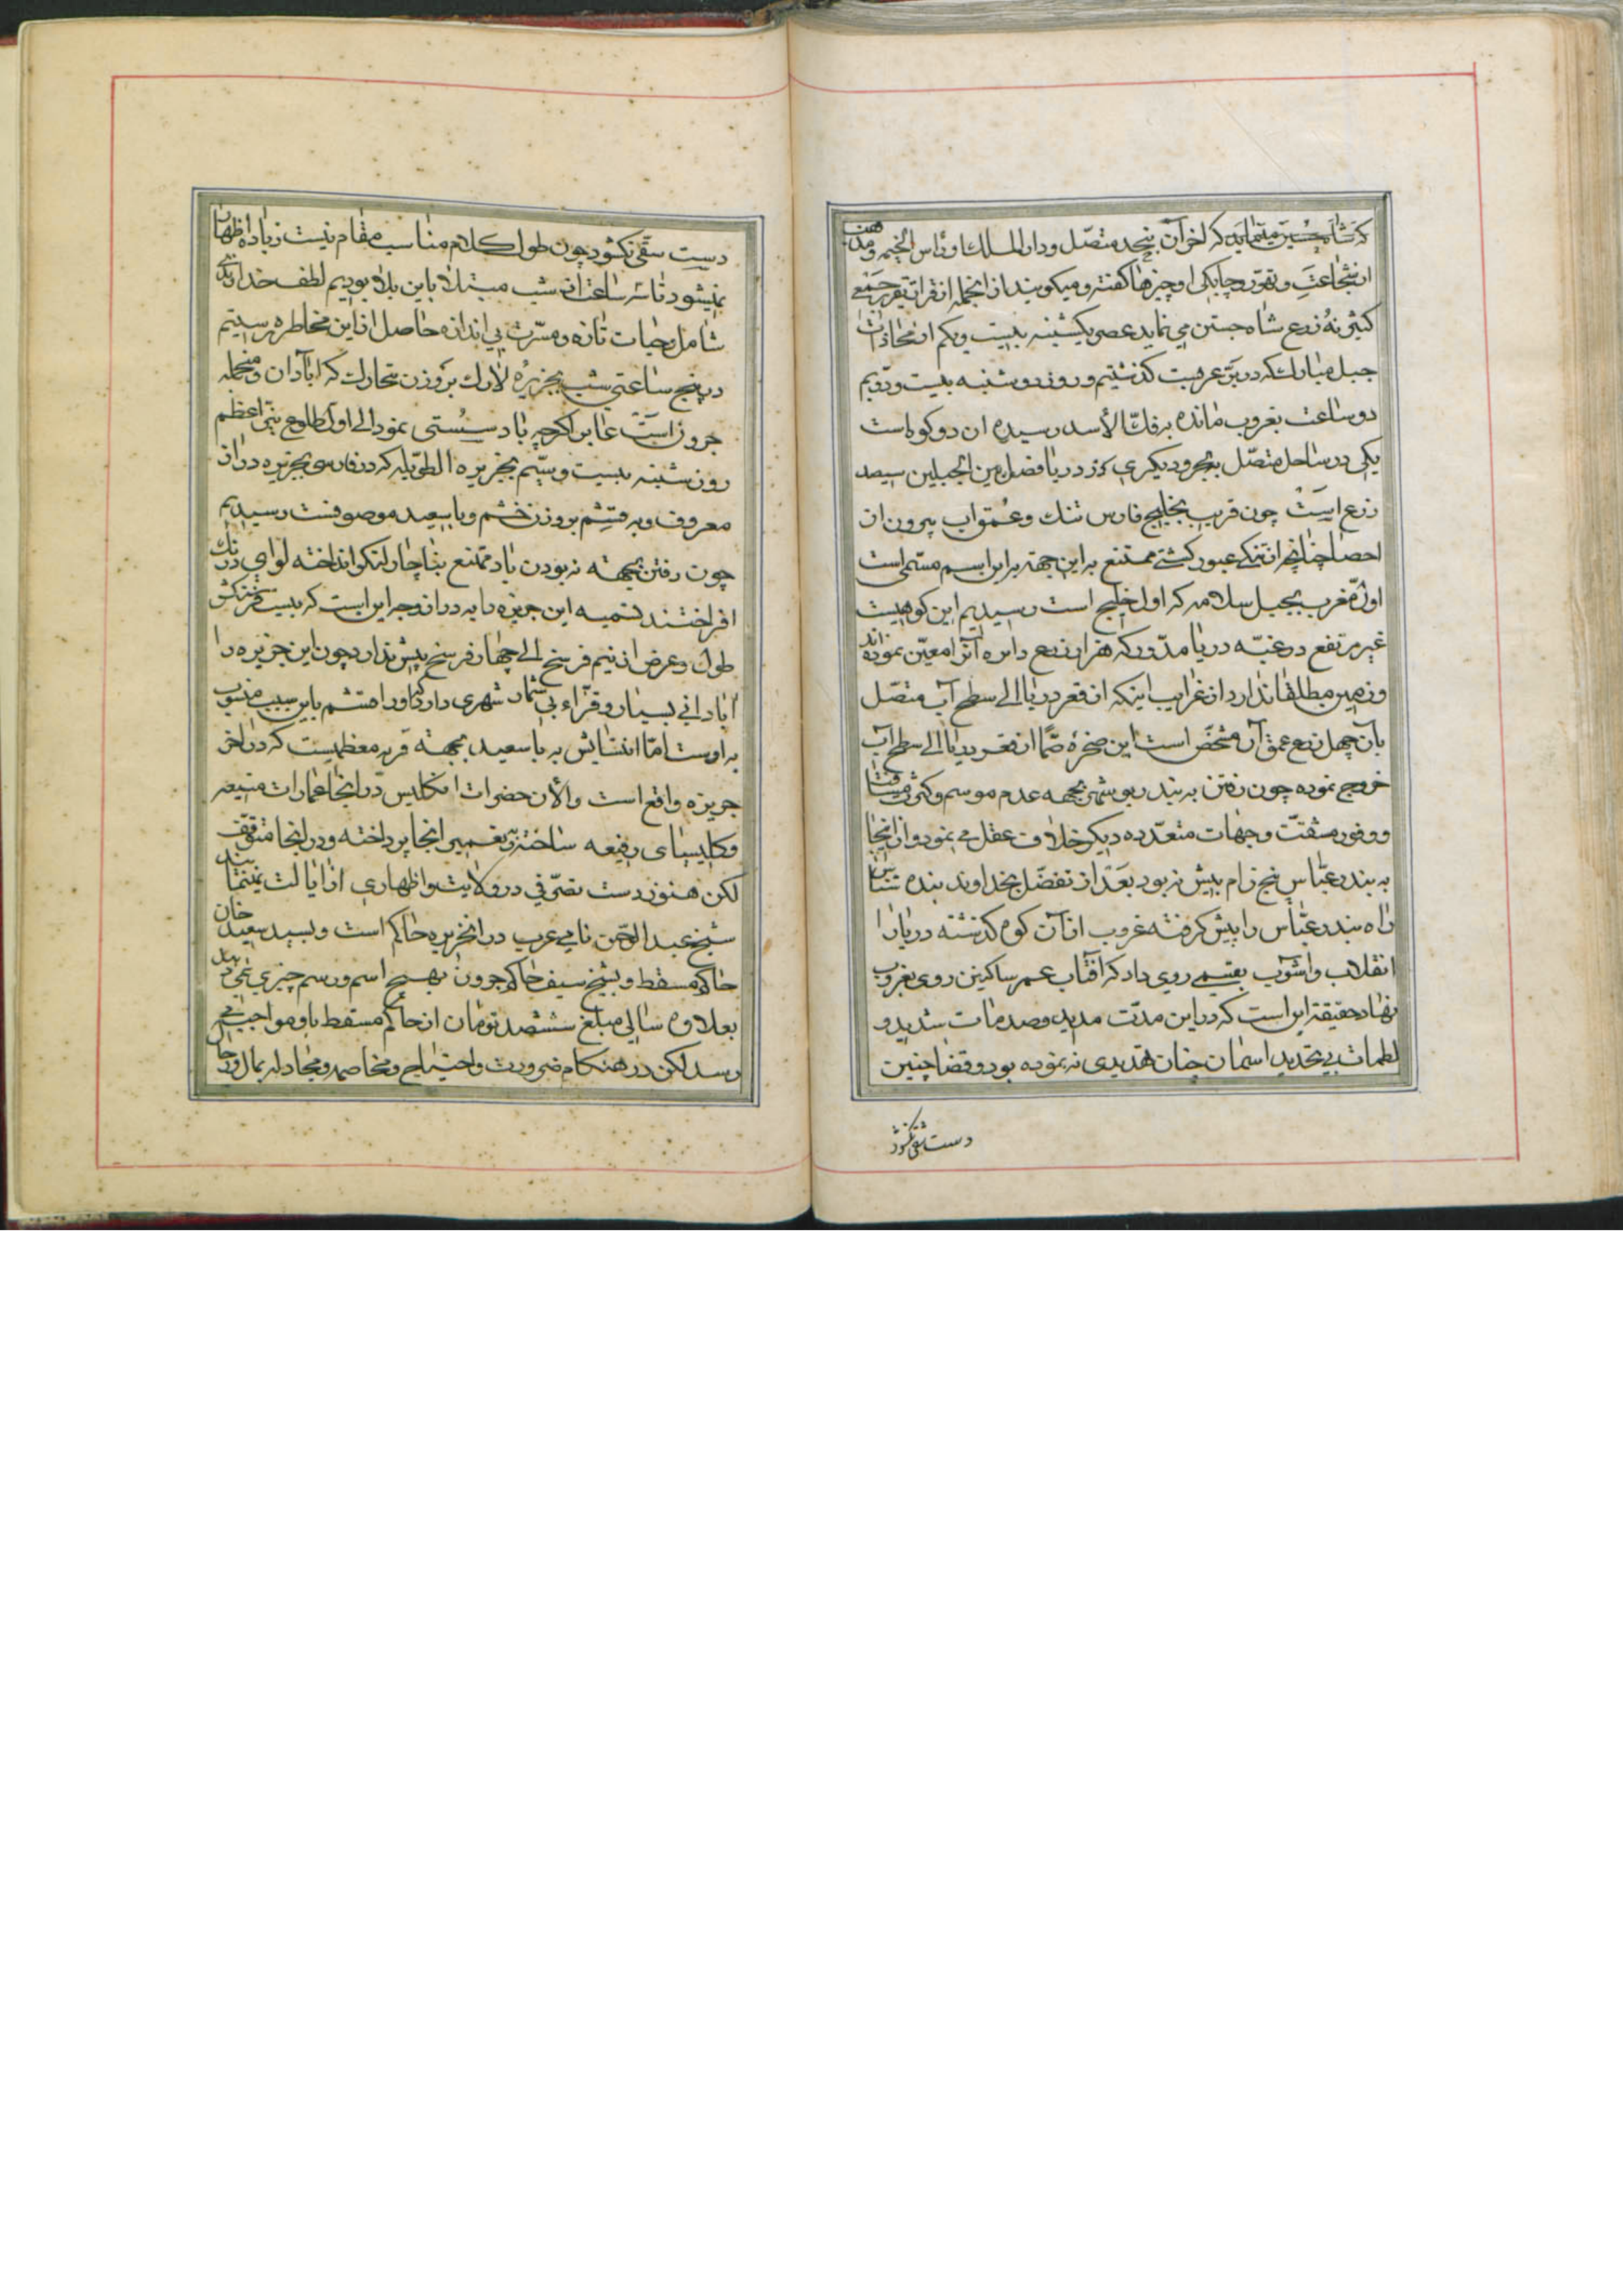 که آخر آن بنجد متصل و دار الملک او راس الخیمه و
از شجاعت و تهور و چابکی او چیزها گفته و میکویند از انجمله از قرار تقریر جمعی
کثیر نه زرع شاه جستن می نماید عصر یکشنبه بیست و یکم از محاذات
جبل مبارک که در بر عربست کذشتیم و روز دوشنبه بیست و دویم
دو ساعت بغروب مانده به فک الأسد رسیده ان دو کوه است
یکی در ساحل متصل به بحر و دیکری در دریا فصل بین الجبلین سیصد
زرع است چون قریب بخلیج فارس تنک و عمق اب بیرون از
احصا چنانچه از تنکی عبور کشتی ممتنع به این جهته بر این اسم مسمی است
اول مغرب بجبل سلامه که اول خلیج است رسیدیم این کوهیست
غیر مرتفع در دریا مدور که هزار زرع دایره آنرا معین نموده اند
و زمین مطلقا ندارد از غرایب اینکه از قعر دریا الی سطح آب متصل
بآن چهل زرع عمق آن مشخص است این صخره صما از قعر دریا الی سطح آب
خروج نموده چون رفتن به بندر بوشهر بجهه عدم موسم و کثرت مسافت
و وفور مشقت و جهات متعدده دیکر خلاف عقل می نمود و از انجا
به بندر عباس پنج زام بیش نبود بعد از تفضل خداوند بنده شناس
راه بندر عباس را پیش کرفته غروب از آن کوه کذشته دریا را
انقلاب و آشوب بقسمی روی داد که آفتاب عمر ساکنین روی بغروب
نهاد حقیقة این است که در این مدت مدید و صدمات شدید و
لطمات بی تحدید اسمان چنان تهدیدی نه نموده بود و قضا چنین
دست شقی نکشود
دست شقی نکشود چون طول کلام مناسب مقام نیست زیاده اظهار
نمیشود تا سه ساعت از شب مبتلا باین بلا بودیم لطف خداوندی
شامل حیات تازه و مسرت بی اندازه حاصل از این مخاطره رستیم
در پنج ساعتی شب بجزیره لارک بر وزن تبارک که ابادان و منجمله
جرون است عابر اکرچه باد سستی نمود الی اول طلوع نیر اعظم
روز شنبه بیست و سیم بجزیره الطویله که در فارسی بجزیره دراز
معروف و به قشم بر وزن خشم و باسعید موصوفست رسیدیم
چون رفتن بجهته نبودن باد ممتنع بناچار لنکر انداخته لوای درنک
افراختند تسمیه این جزیره را به دراز وجه این است که بیست فرسنکش
طول و عرض از نیم فرسخ الی چهار فرسخ بیش ندارد چون این جزیره را
ابادانی بسیار و قراء بی شمار شهری دارد که او را قشم باین سبب منسوب
به اوست اما انتسابش به باسعید بجهته قریه معظمیست که در اخر
جزیره واقع است و الأن حضرات انکلیس در انجا عمارات منیعه
و کلیسای رفیعه ساخته به تعمیر انجا پرداخته و در انجا متوقف
لکن هنوز دست تصرفی در ولایت و اظهاری از ایالت نمینمایند
شیخ عبد الرحمن نامی عرب در انجزیره حاکم است و بسید سعید خان
حاکم مسقط و بشیخ سیف حاکم جرون بهیچ اسم و رسم چیزی نمی دهد
بعلاوه سالی مبلغ ششصد تومان از حاکم مسقط باو مواجب می
رسد لکن در هنکام ضرورت و احتیاج و مخاصمه و مجادله بمال و رجال